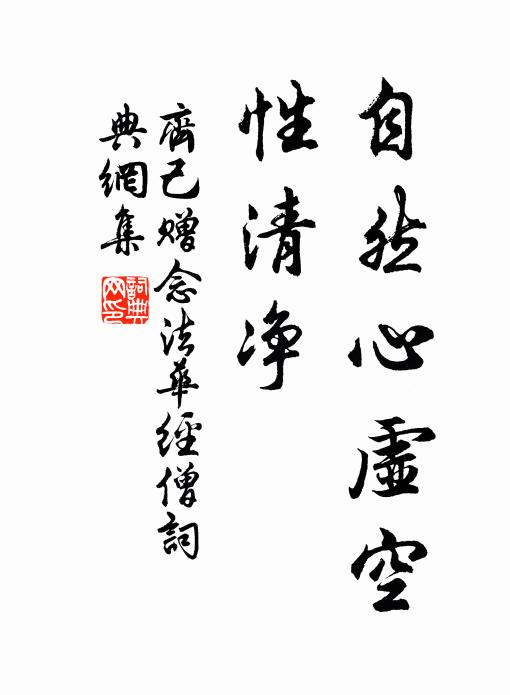 自然心虛空
性清净
齊己赠念法華經僧詞
典網集
詞典
网印